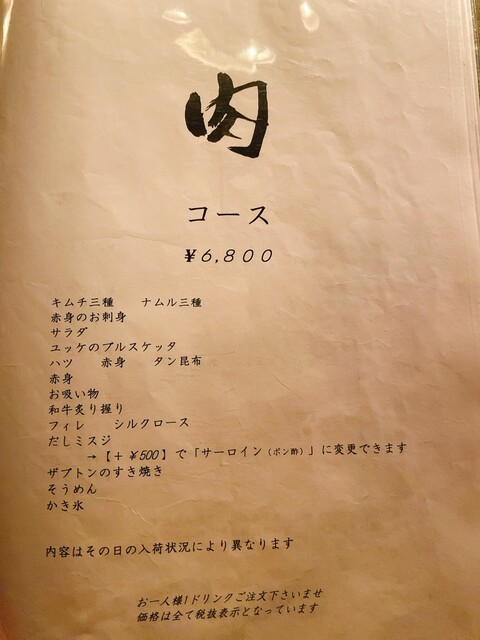 肉
コース
¥6,800
キムチ三種　ナムル三種
赤身のお刺身
サラダ
ユッケのブルスケッタ
ハツ　赤身　タン昆布
赤身
お吸い物
和牛炙り握り
フィレ　シルクロース
だしミスジ
→【＋¥500】で「サーロイン（ポン酢）」に変更できます
ザブトンのすき焼き
そうめん
かき氷
内容はその日の入荷状況により異なります
お一人様1ドリンクご注文下さいませ
価格は全て税抜表示となっています